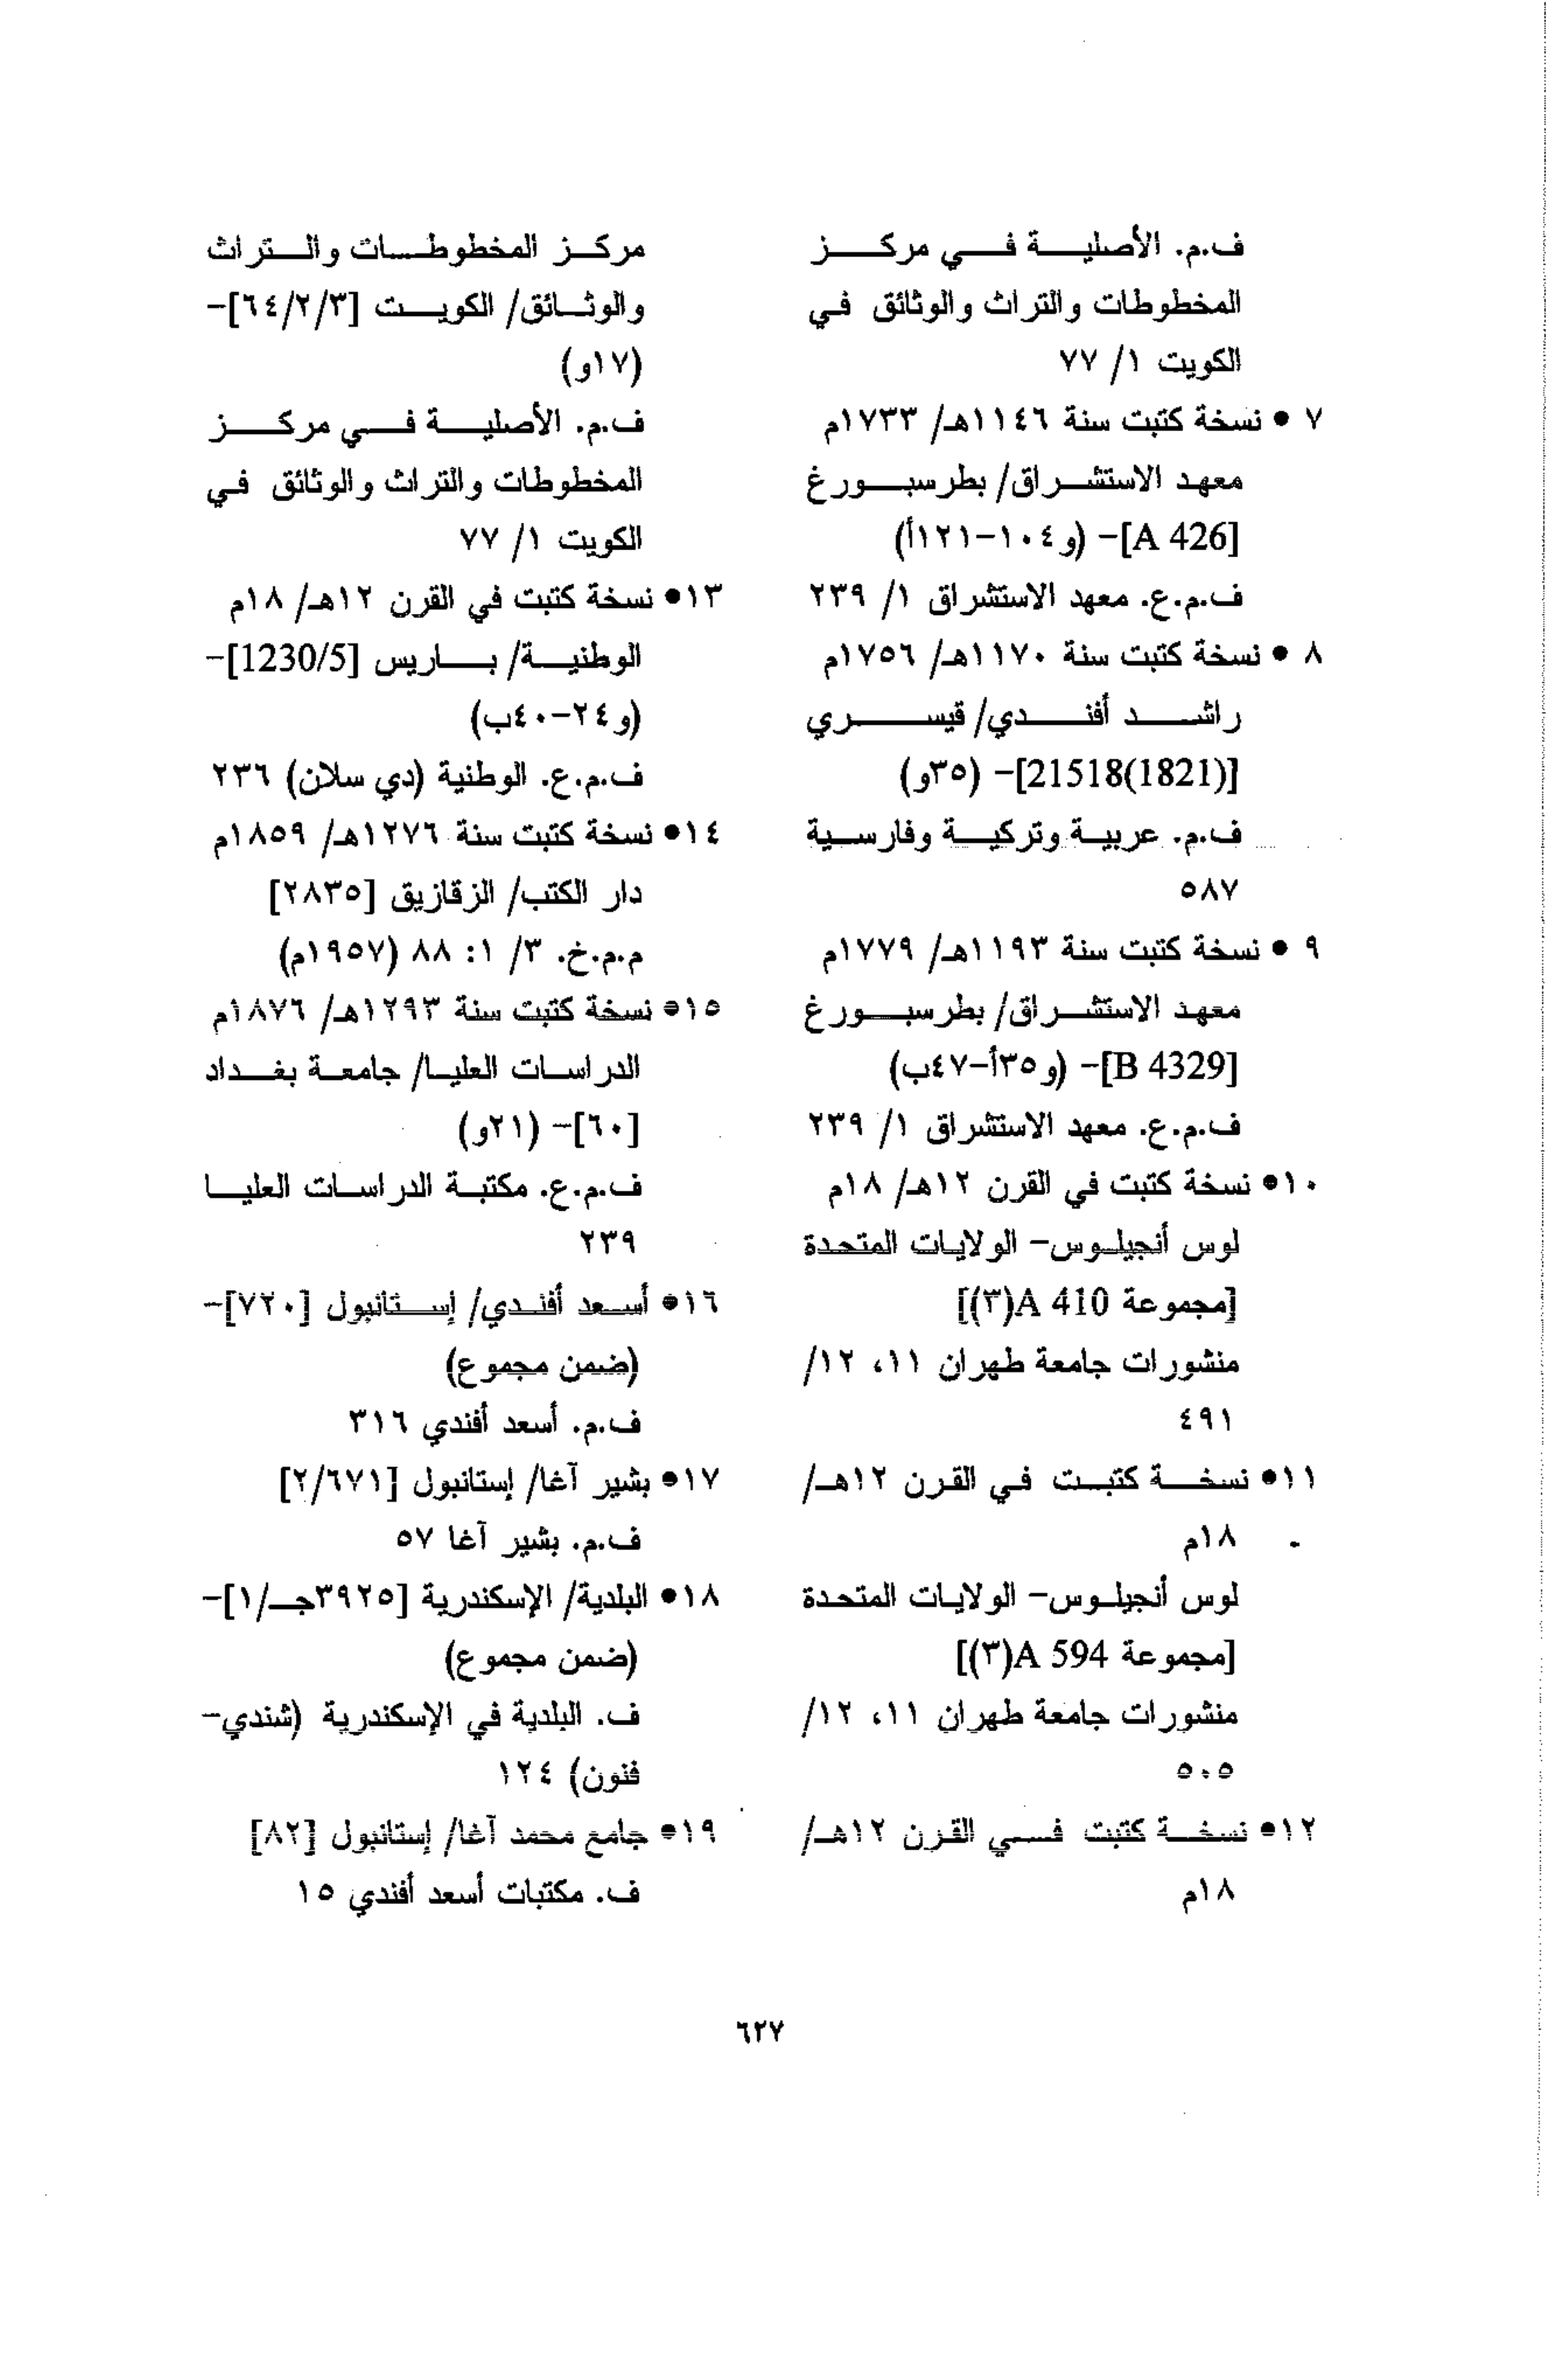 ف.م. الأصلية في مركز
المخطوطات والتراث والوثائق في
الكويت ١/ ٧٧
٧ • نسخة كتبت سنة ١١٤٦هـ/ ١٧٣٣م
معهد الاستشراق/ بطرسبورغ
[A 426]- (و١٠٤-١٢١أ)
ف.م.ع. معهد الاستشراق ١/ ٢٣٩
٨ • نسخة كتبت سنة ١١٧٠هـ/ ١٧٥٦م
راشد أفندي/ قيسري
[21518(1821)]- (٣٥و)
ف.م. عربية وتركية وفارسية
٥٨٧
٩ • نسخة كتبت سنة ١١٩٣هـ/ ١٧٧٩م
معهد الاستشراق/ بطرسبورغ
[B 4329]- (و٣٥أ-٤٧ب)
ف.م.ع. معهد الاستشراق ١/ ٢٣٩
١٠• نسخة كتبت في القرن ١٢هـ/ ١٨م
لوس أنجيلوس- الولايات المتحدة
[مجموعة A 410(٣)]
منشورات جامعة طهران ١١، ١٢/
٤٩١
١١• نسخة كتبت في القرن ١٢هـ/
١٨م
لوس أنجيلوس- الولايات المتحدة
[مجموعة A 594(٣)]
منشورات جامعة طهران ١١، ١٢/
٥٠٥
١٢• نسخة كتبت في القرن ١٢هـ/
١٨م
مركز المخطوطات والتراث
والوثائق/ الكويت [٦٤/٢/٣]-
(١٧و)
ف.م. الأصلية في مركز
المخطوطات والتراث والوثائق في
الكويت ١/ ٧٧
١٣• نسخة كتبت في القرن ١٢هـ/ ١٨م
الوطنية/ باريس [1230/5]-
(و٢٤-٤٠ب)
ف.م.ع. الوطنية (دي سلان) ٢٣٦
١٤• نسخة كتبت سنة ١٢٧٦هـ/ ١٨٥٩م
دار الكتب/ الزقازيق [٢٨٣٥]
م.م.خ. ٣/ ١: ٨٨ (١٩٥٧م)
١٥• نسخة كتبت سنة ١٢٩٣هـ/ ١٨٧٦م
الدراسات العليا/ جامعة بغداد
[٦٠]- (٢١و)
ف.م.ع. مكتبة الدراسات العليا
٢٣٩
١٦• أسعد أفندي/ إستانبول [٧٢٠]-
(ضمن مجموع)
ف.م. أسعد أفندي ٣١٦
١٧• بشير آغا/ إستانبول [٢/٦٧١]
ف.م. بشير آغا ٥٧
١٨• البلدية/ الإسكندرية [٣٩٢٥جـ/١]-
(ضمن مجموع)
ف. البلدية في الإسكندرية (شندي-
فنون) ١٢٤
١٩• جامع محمد آغا/ إستانبول [٨٢]
ف. مكتبات أسعد أفندي ١٥
٦٢٧